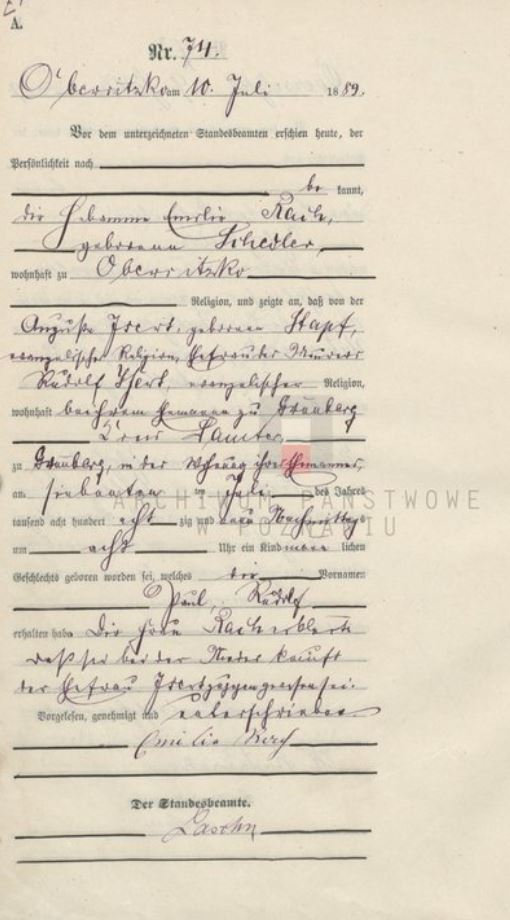 A.
Nr. 74.
Obersitzko am 10. Juli 1889.
Vor dem unterzeichneten Standesbeamten erschien heute, der
Persönlichkeit nach
be kannt,
die Hebamme Emilie
geborene Schedler,
wohnhaft zu Obersitzko
Religion, und zeigte an, daß von der
Auguste Isert, geborenen Stapf,
evangelischer Religion, Ehefrau des Maurers
Rudolf Isert, evangelischer Religion,
wohnhaft bei ihrem Ehemanne zu Grünberg
Kreis Samter
zu Grünberg, in der Wohnung ihres Ehemannes,
am siebenten ten Juli des Jahres
tausend acht hundert acht zig und neun Nachmittags
um acht Uhr ein Kind männ lichen
Geschlechts geboren worden sei, welches die Vornamen
Paul, Rudolf
erhalten habe Die Frau erklärte
daß sie bei der Niederkunft
der Ehefrau Isert zugegen gewesen sei.
Vorgelesen, genehmigt und unterschrieben
Emilie
Der Standesbeamte.
ARCHIWUM PAŃSTWOWE
W POZNANIU